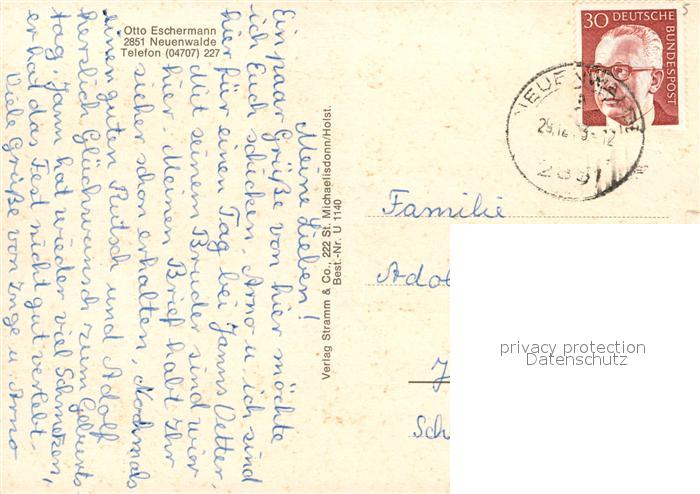 Otto Eschermann
2851 Neuenwalde
Telefon (04707) 227
Meine Lieben!
Ein paar Grüße von hier möchte
ich Euch schicken, Arno u. ich sind
hier für einen Tag bei Janns Vetter,
mit seinem Bruder sind wir
hier. Meinen Brief habt Ihr
sicher schon erhalten, Nochmals
einen guten Rutsch und Adolf
herzlich Glückwunsch zum Geburts
tag, Jann hat wieder viel Schmerzen,
er hat das Fest nicht gut verlebt.
Viele Grüße von Inge u Arno
Verlag Stramm & Co., 222 St. Michaelisdonn/Holst.
Best.-Nr. U 1140
30 DEUTSCHE
BUNDESPOST
NEUENWALDE
29.12.
-12
2851
Familie
Adol
J
Sch
privacy protection
Datenschutz